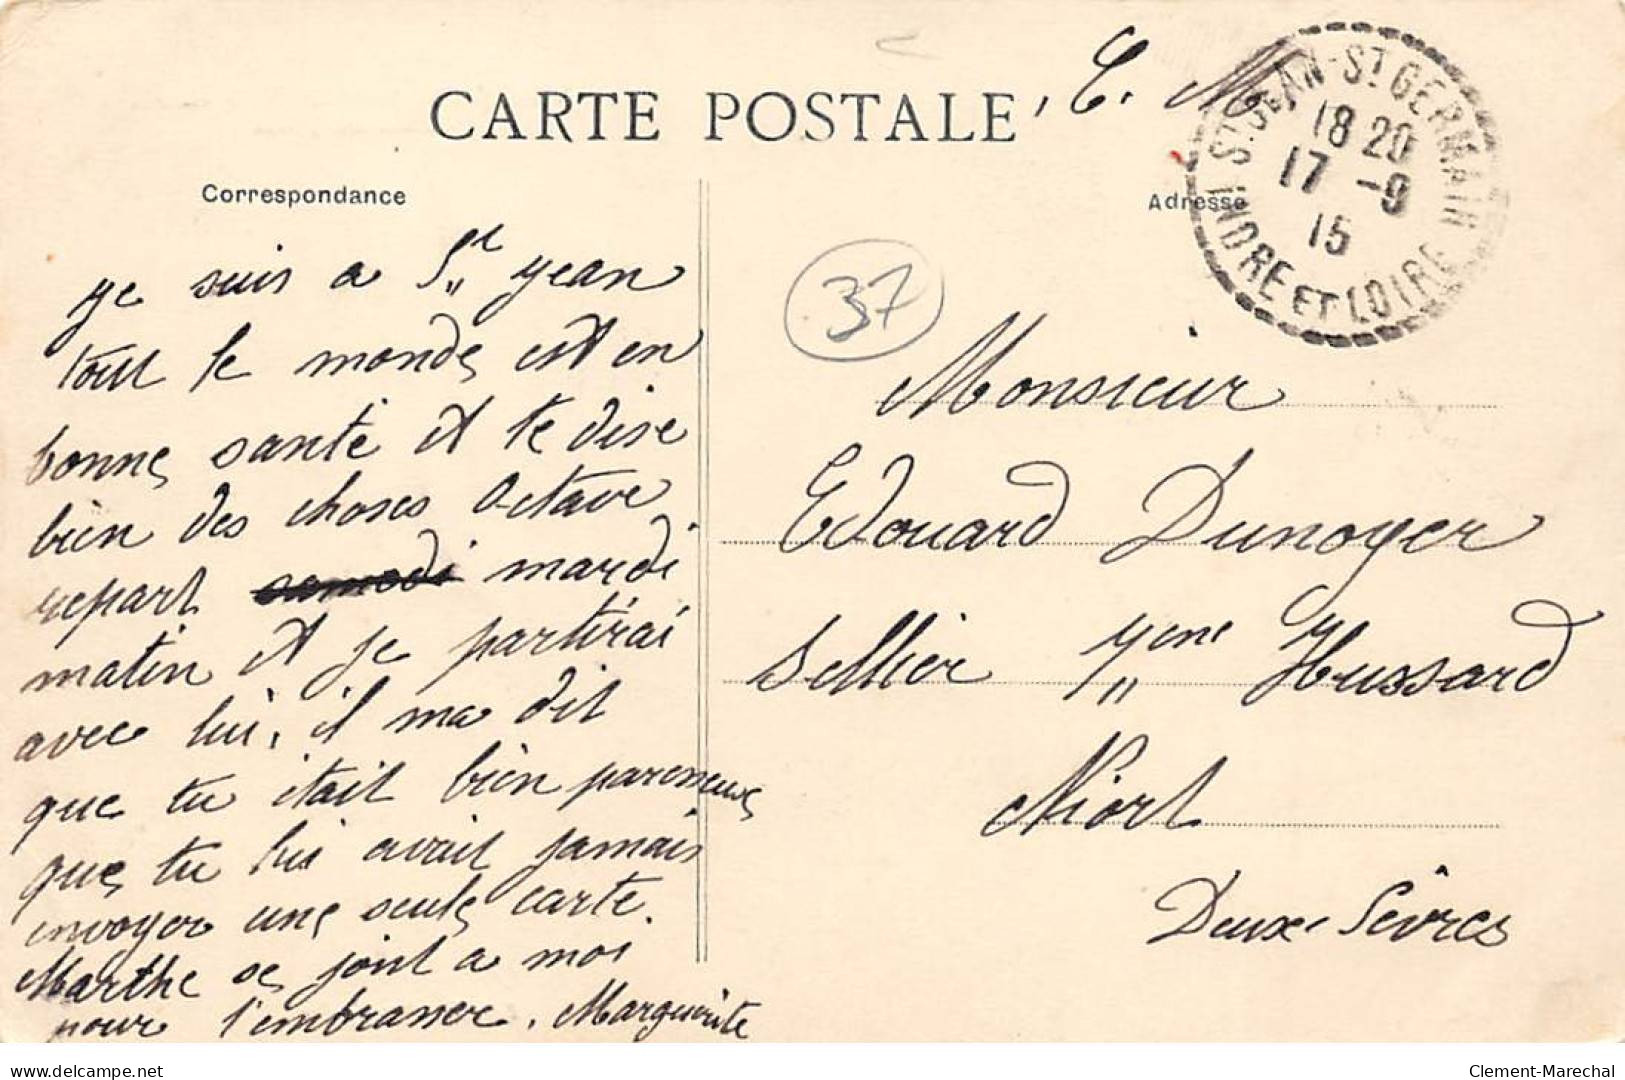 CARTE POSTALE
C. M.
ST JEAN-ST GERMAIN
18 20
17 -9
15
INDRE ET LOIRE
Correspondance
Adresse
37
je suis a St Jean
tout le monde est en
bonne santé et te dise
bien des choses Octave
repart samedi mardi
matin et je partirai
avec lui, il ma dit
que tu était bien paresseux
que tu lui avait jamais
envoyer une seule carte.
Marthe se joint a moi
pour t'embrasser. Marguerite
Monsieur
Edouard Dunoyer
Sellier 7eme Hussard
Niort
Deux Sèvres
Clement-Marechal